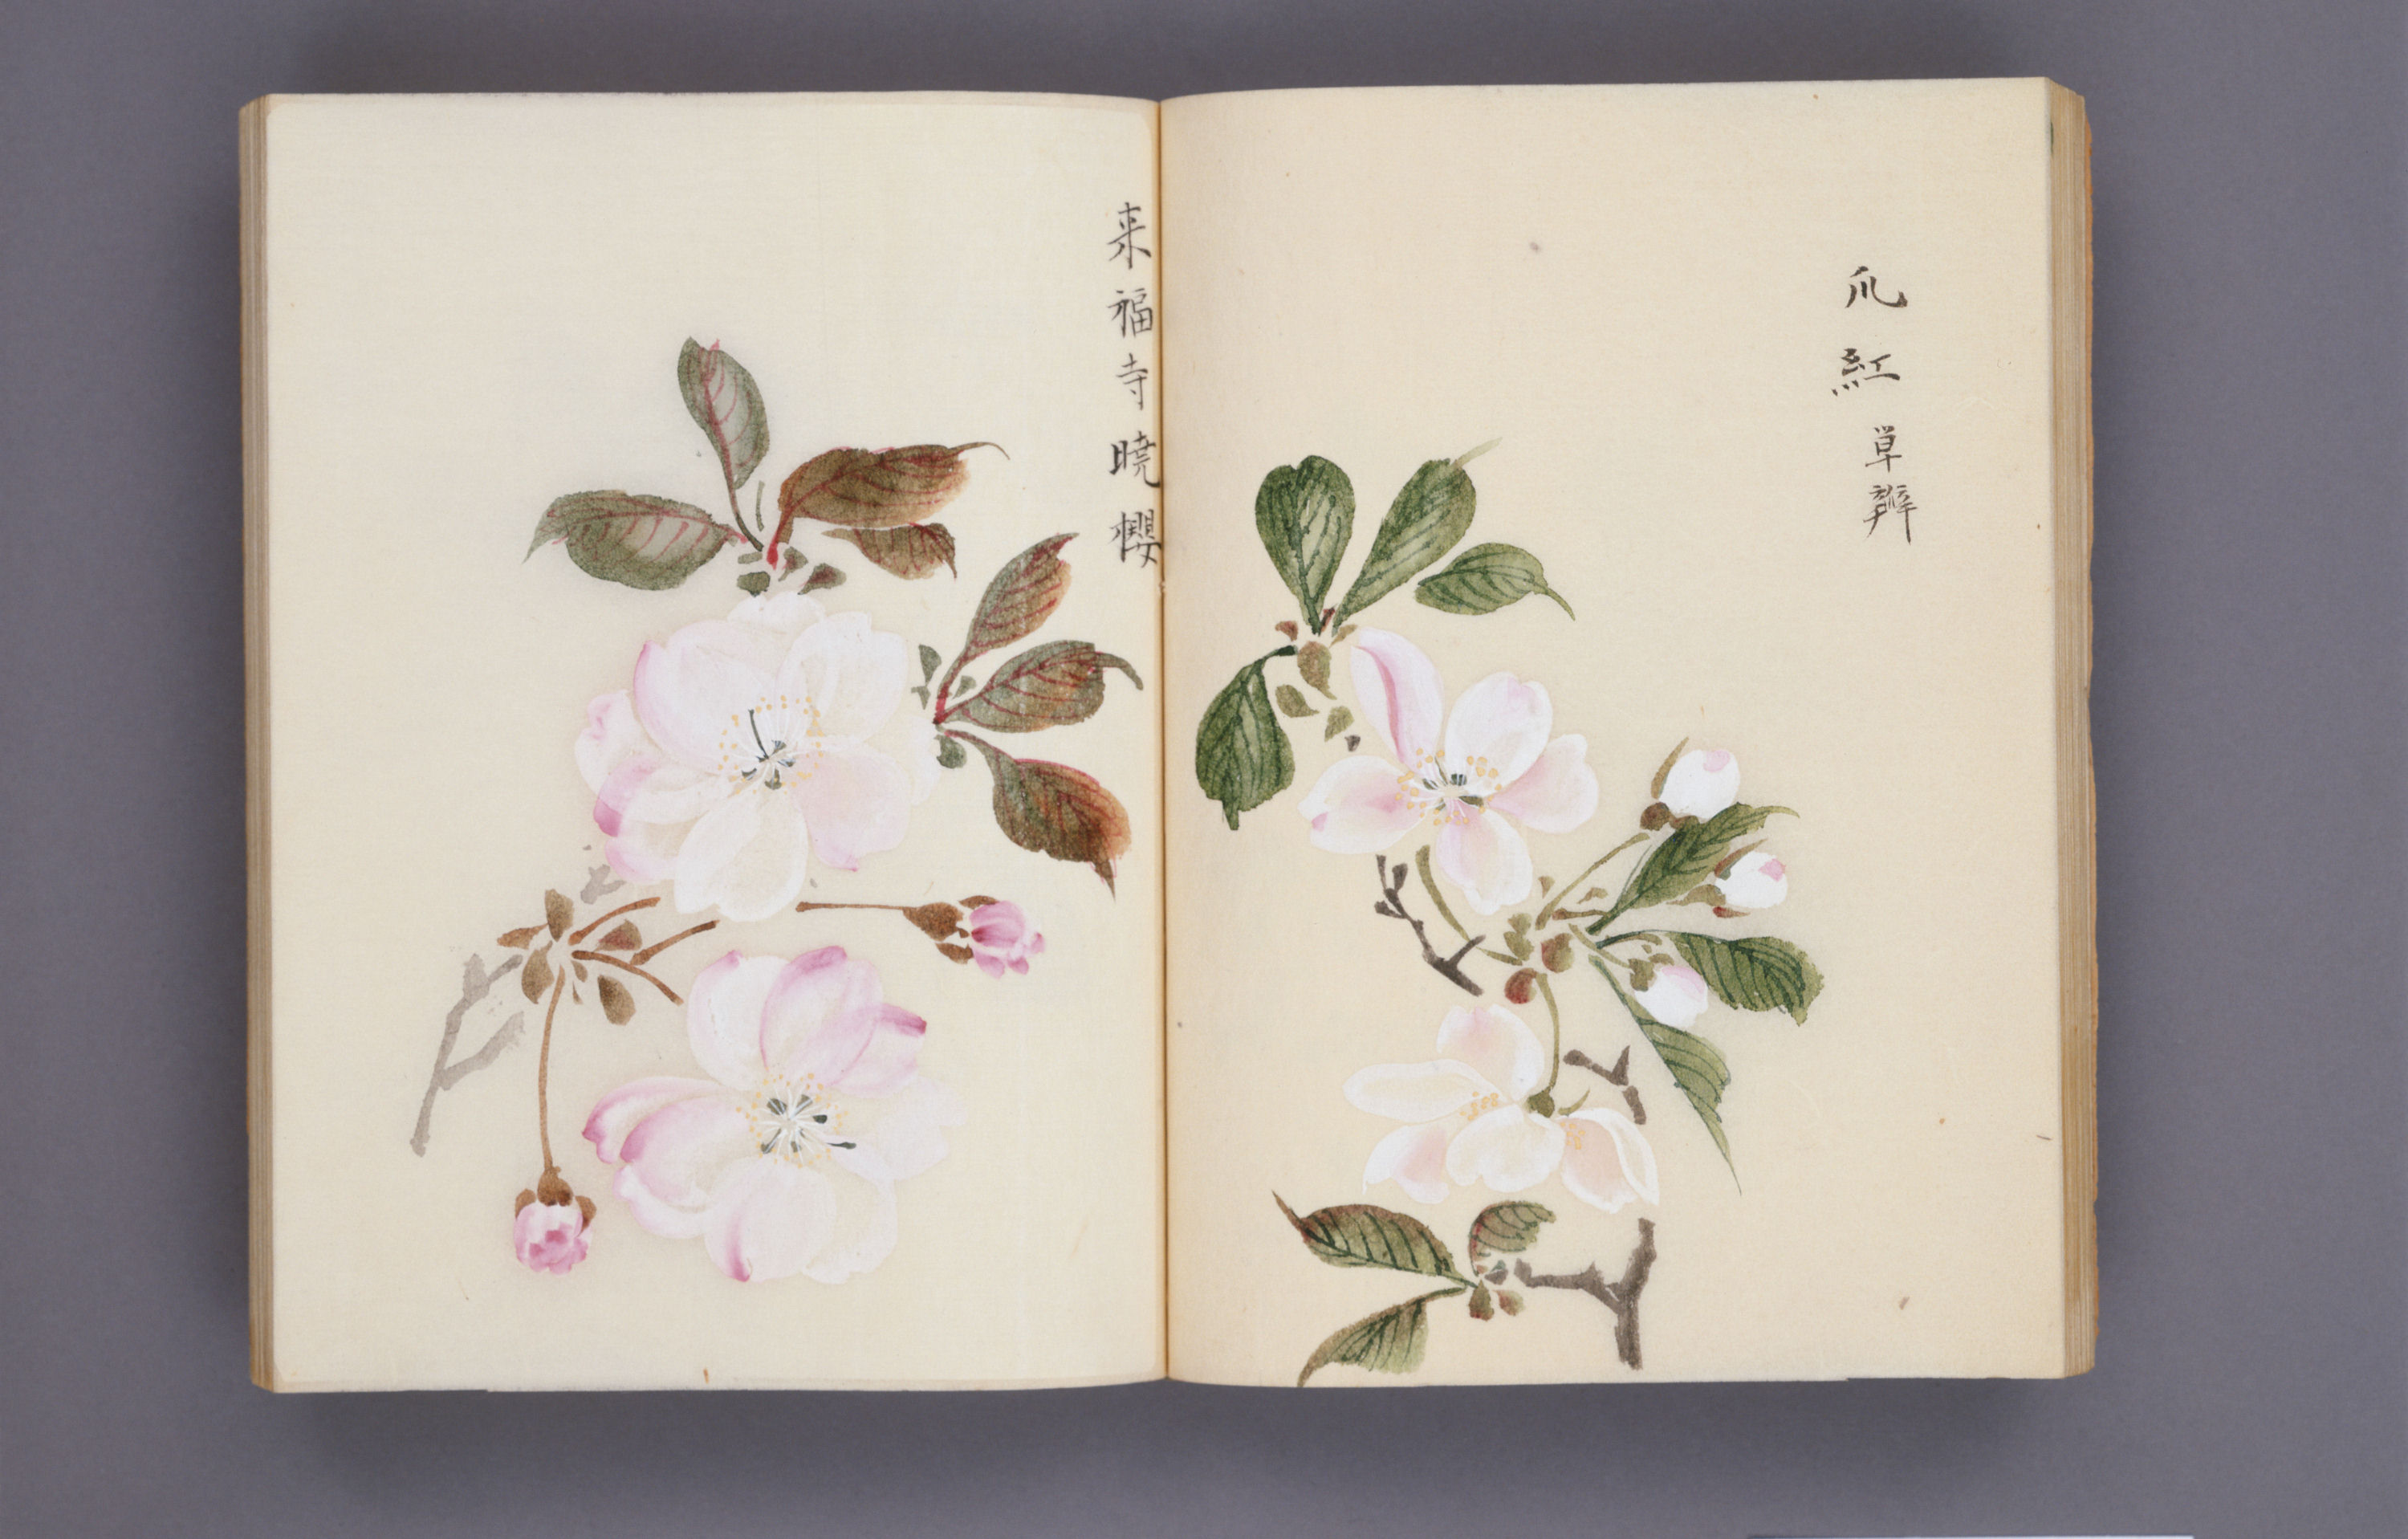 爪紅
単辨
来福寺暁櫻